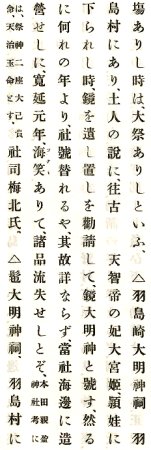 塲ありし時は、大祭ありしといふ、△羽島崎大明神祠、羽
島村にあり、土人の說に、往古 天智帝の妃大宮姬、頴娃に
下られし時、鏡を遺し置しを勸請して鏡大明神と號す、然る
に何れの年より社號替れるや、其故詳ならず、當社海邊に造
營せしに、寬延元年海嘯ありて、諸品流失せしとぞ、本田親盈神社考に
は、祭神二座大己貴命、天治玉命とす、社司梅北氏、△髢大明神祠、羽島村に